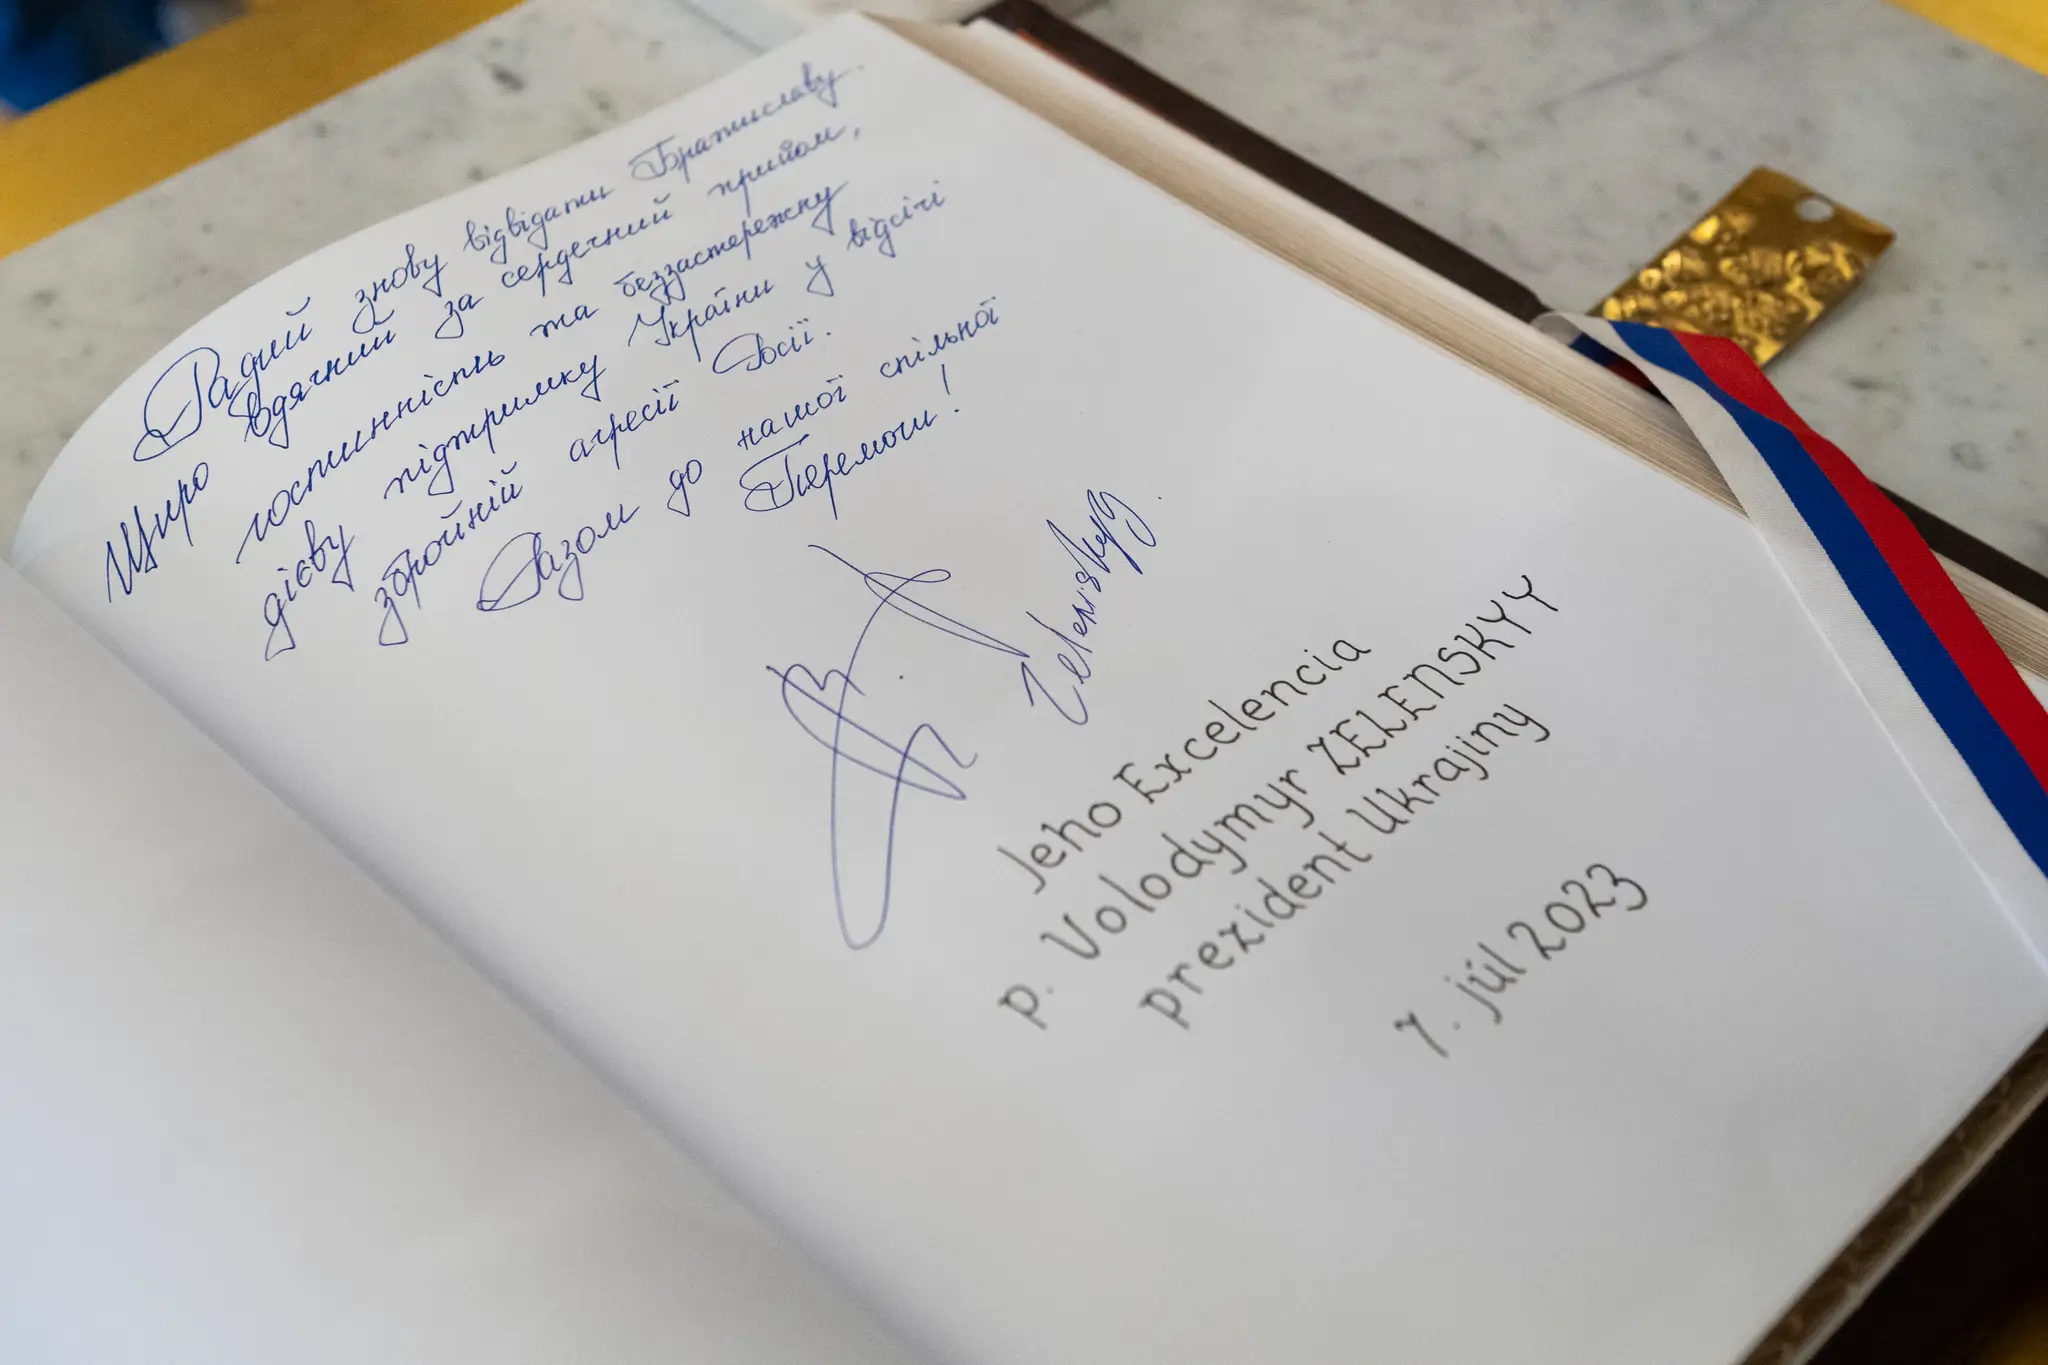 Радий знову відвідати Братиславу.
Щиро вдячний за сердечний прийом,
гостинність та беззастережну
дієву підтримку України у відсічі
збройній агресії Росії.
Разом до нашої спільної
Перемоги!
Zelenskyy.
Jeho Excelencia
p. Volodymyr ZELENSKYY
prezident Ukrajiny
7. júl 2023